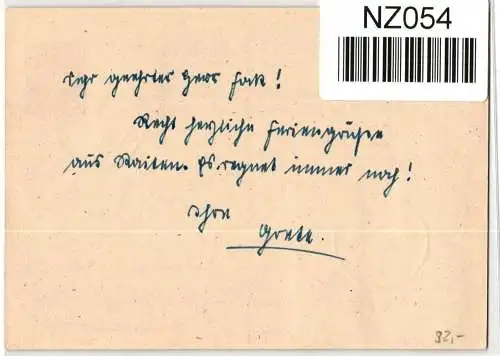 NZ054
Sehr geehrter Herr Fack!
Recht herzliche Feriengrüße
aus Raiten. Es regnet immer noch!
Ihre
Grete.
32,-